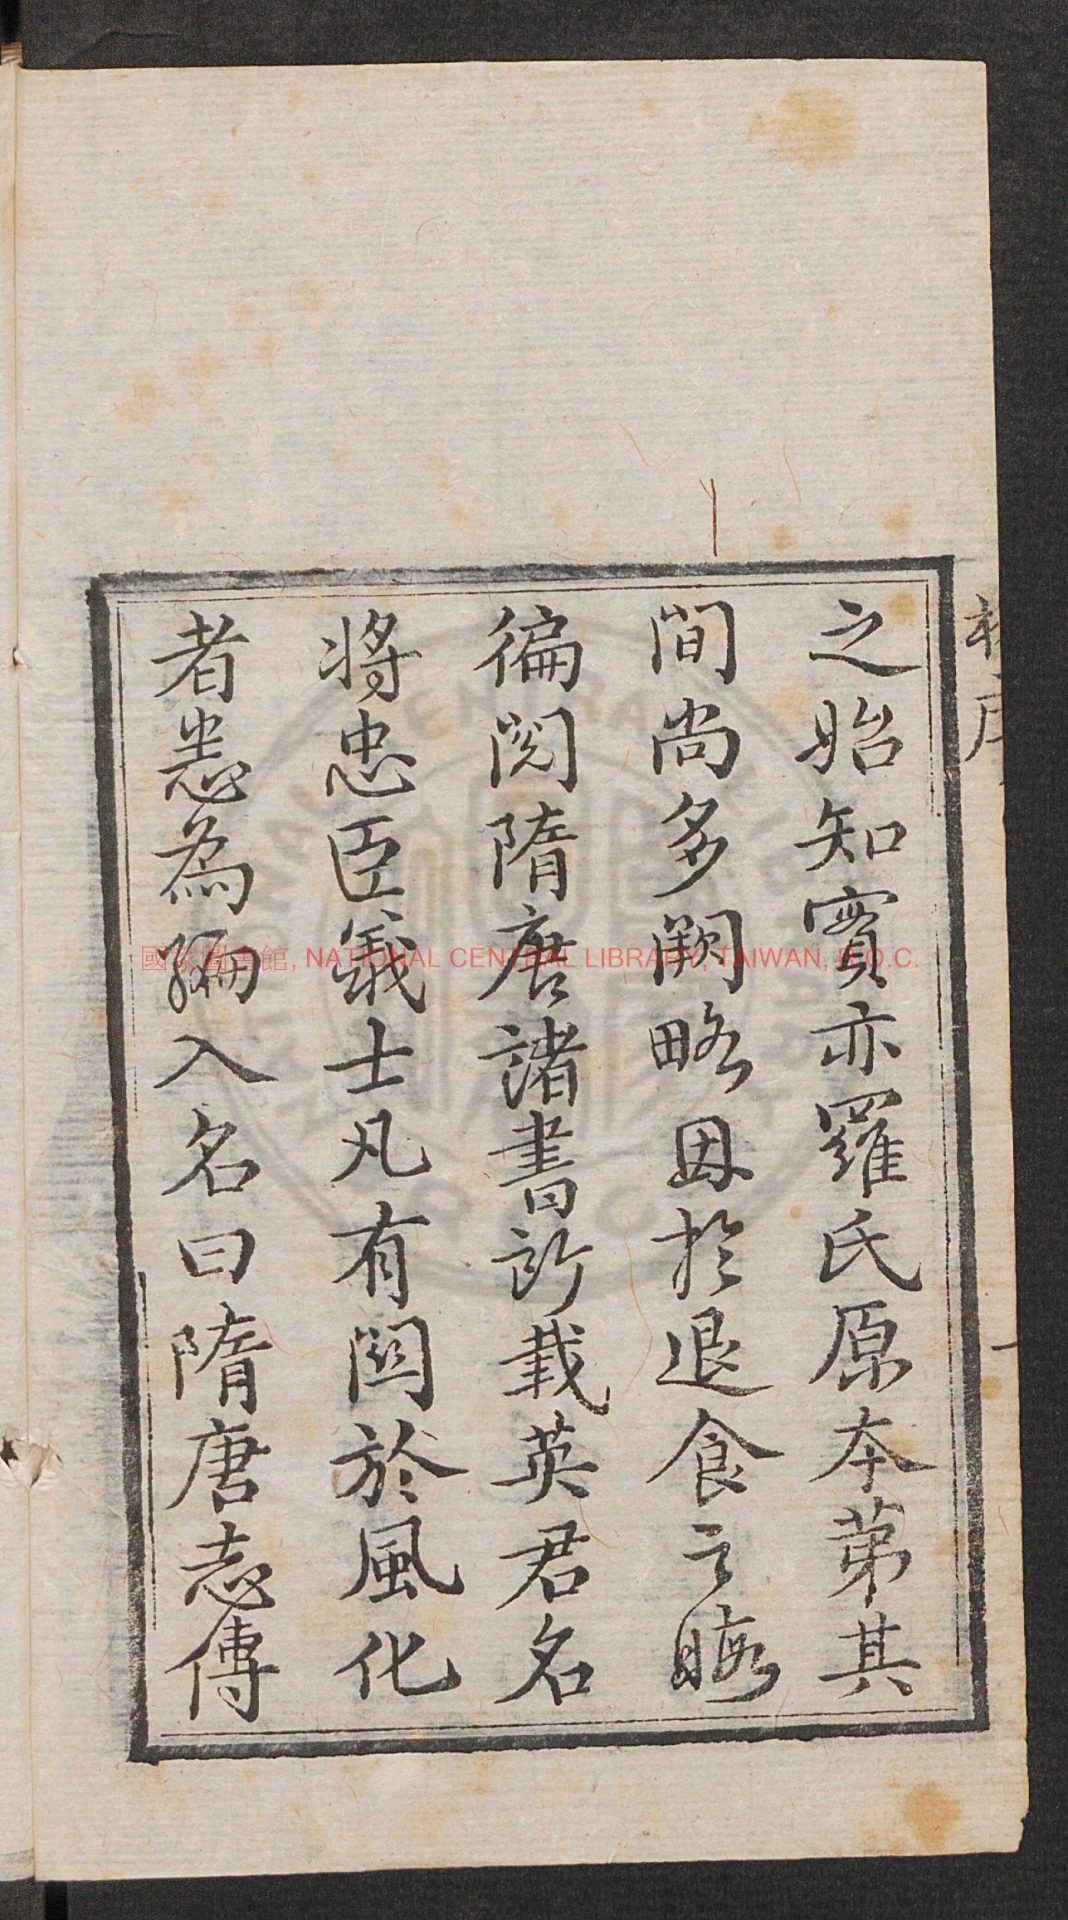 之始知實亦羅氏原本苐其
間尚多闕略因於退食之暇
徧閱隋唐諸書所載英君名
將忠臣義士凡有関於風化
者悉為編入名曰隋唐志傳
國家圖書館, NATIONAL CENTRAL LIBRARY, TAIWAN, R.O.C.